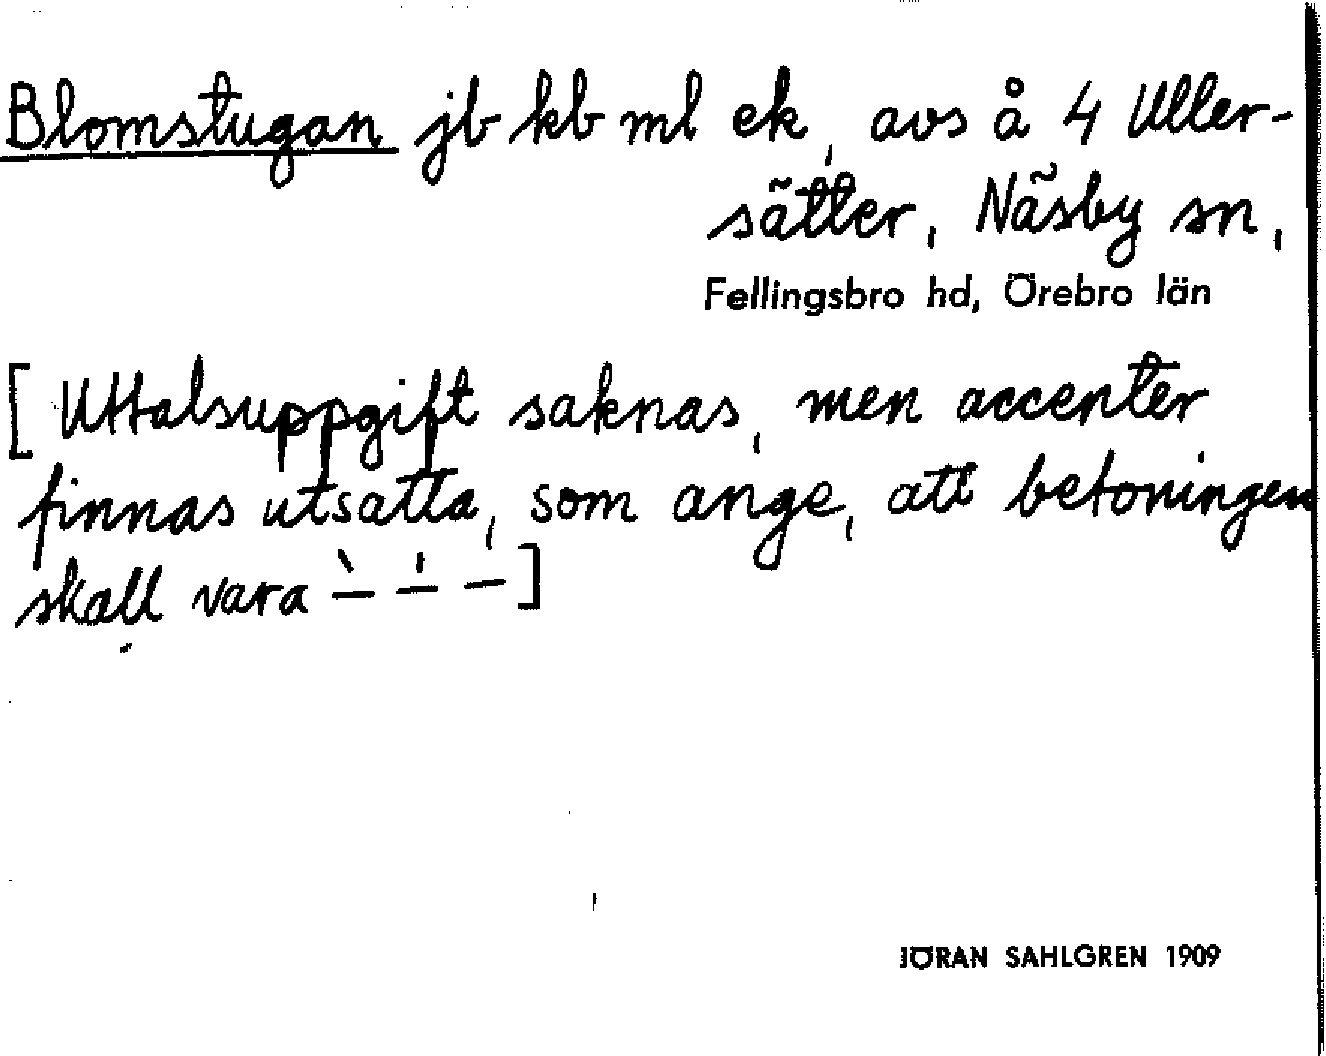 Blomstugan jb kb ml ek, avs å 4 Uller-
sätter, Näsby sn,
Fellingsbro hd, Örebro län
[Uttalsuppgift saknas, men accenter
finnas utsatta, som ange, att betoningen
skall vara `— '— —]
JÖRAN SAHLGREN 1909